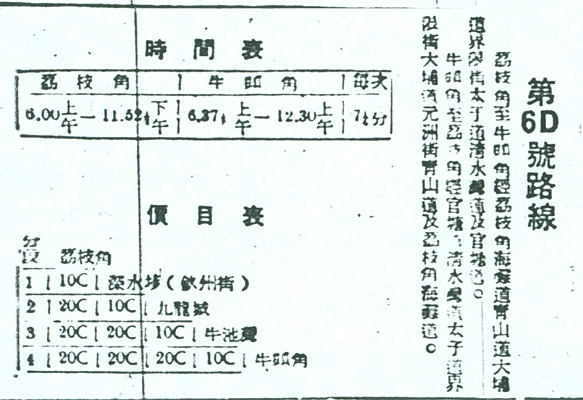 第6D號路線
荔枝角至牛頭角經荔枝角海傍道青山道大埔
道界限街太子道清水灣道及官塘道。
牛頭角至荔枝角經官塘道清水灣道太子道界
限街大埔道元洲街青山道及荔枝角海傍道。
時間表
荔枝角 牛頭角 每次
6.00上午—11.52½下午 6.37½上午—12.30上午 7½分
價目表
分段 荔枝角
1 10C 深水埗（欽州街）
2 20C 10C 九龍城
3 20C 20C 10C 牛池灣
4 20C 20C 20C 10C 牛頭角